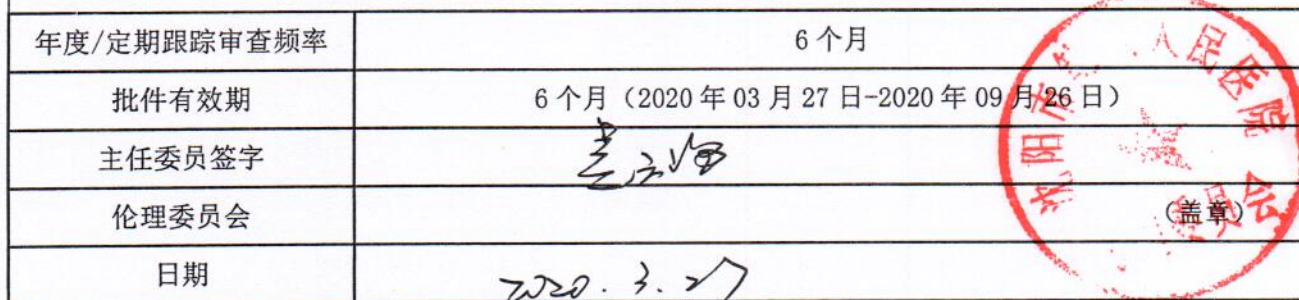 年度/定期跟踪审查频率 6个月
批件有效期 6个月（2020年03月27日-2020年09月26日）
主任委员签字
伦理委员会 （盖章）
日期 2020.3.27
阳市 人民医院 会